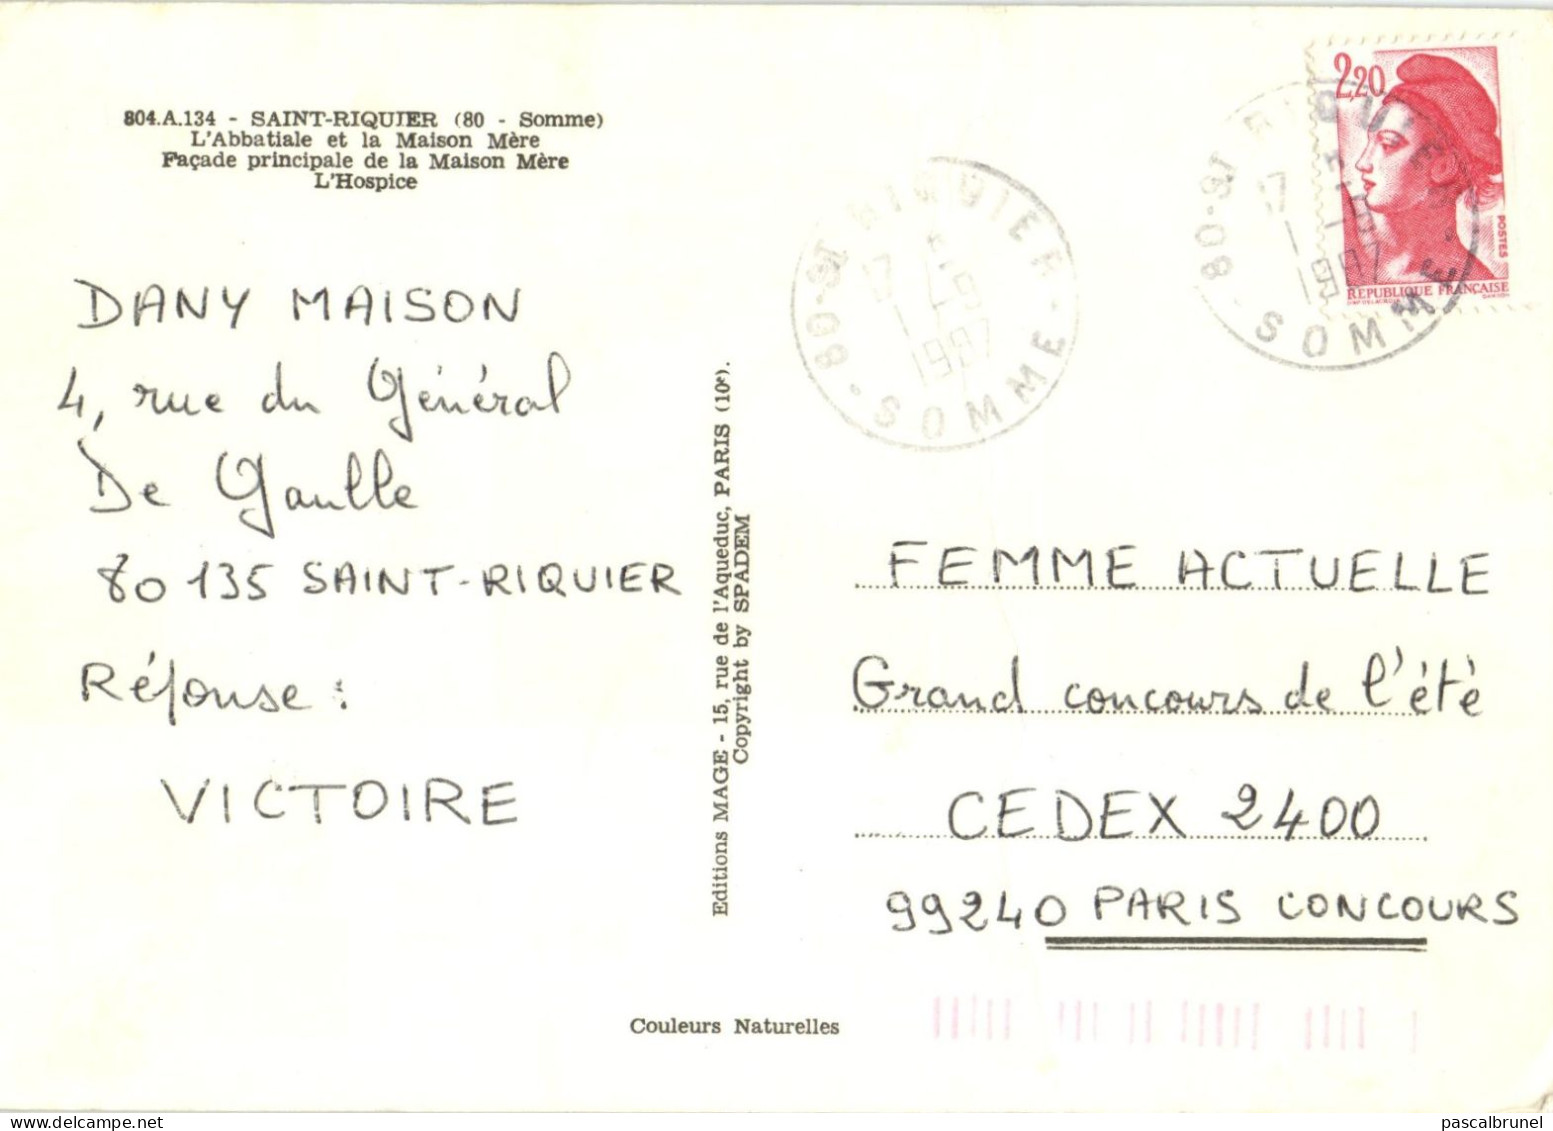 804.A.134 - SAINT-RIQUIER (80 - Somme)
L'Abbatiale et la Maison Mère
Façade principale de la Maison Mère
L'Hospice
DANY MAISON
4, rue du Général
De Gaulle
80135 SAINT-RIQUIER
Réponse :
VICTOIRE
Editions MAGE - 15, rue de l'Aqueduc, PARIS (10e).
Copyright by SPADEM
Couleurs Naturelles
80 - ST RIQUIER - SOMME
17
1987
2,20
POSTES
REPUBLIQUE FRANÇAISE
80 - ST RIQUIER - SOMME
17
1987
FEMME ACTUELLE
Grand concours de l'été
CEDEX 2400
99240 PARIS CONCOURS
pascalbrunel